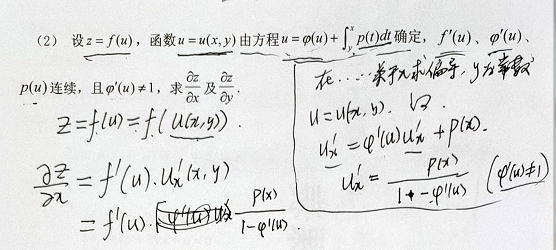 (2) 设z=f(u),函数u=u(x,y)由方程u=φ(u)+∫_y^x p(t)dt确定,f'(u)、φ'(u)、
p(u)连续,且φ'(u)≠1,求∂z/∂x及∂z/∂y.
z=f(u)=f(u(x,y)).
∂z/∂x=f'(u).u'ₓ(x,y)
=f'(u). p(x)/(1-φ'(u)).
在....关于x求偏导,y为常数
u=u(x,y).
u'ₓ=φ'(u)u'ₓ+p(x).
u'ₓ=p(x)/(1-φ'(u)) (φ'(u)≠1)